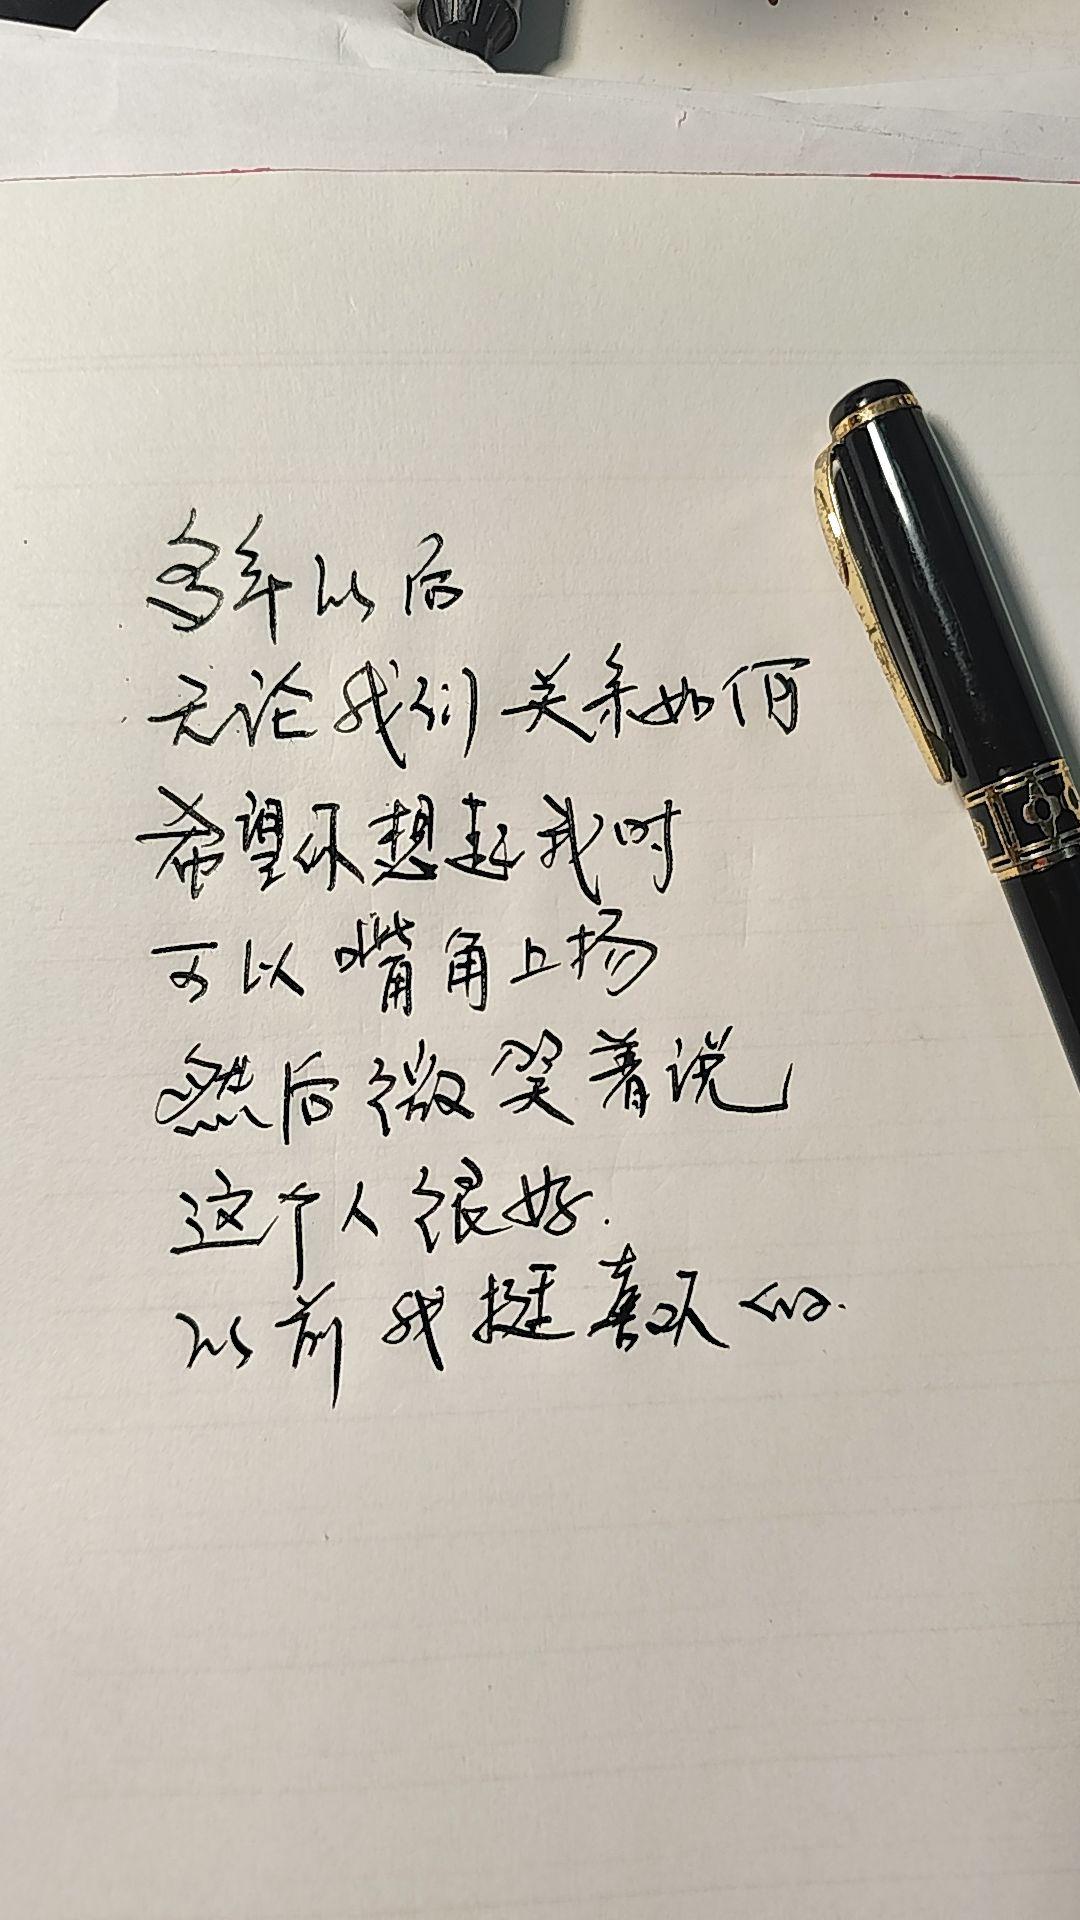 多年以后
无论我们关系如何
希望你想起我时
可以嘴角上扬
然后微笑着说
这个人很好.
以前我挺喜欢的.